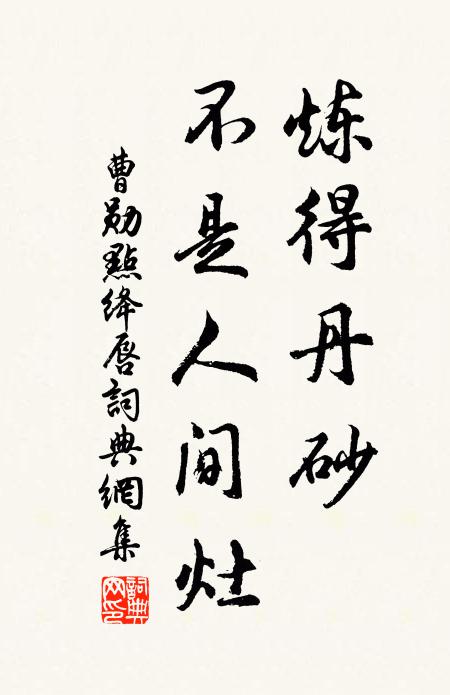 炼得丹砂
不是人间灶
曹勋點绛唇詞典網集
詞典网印